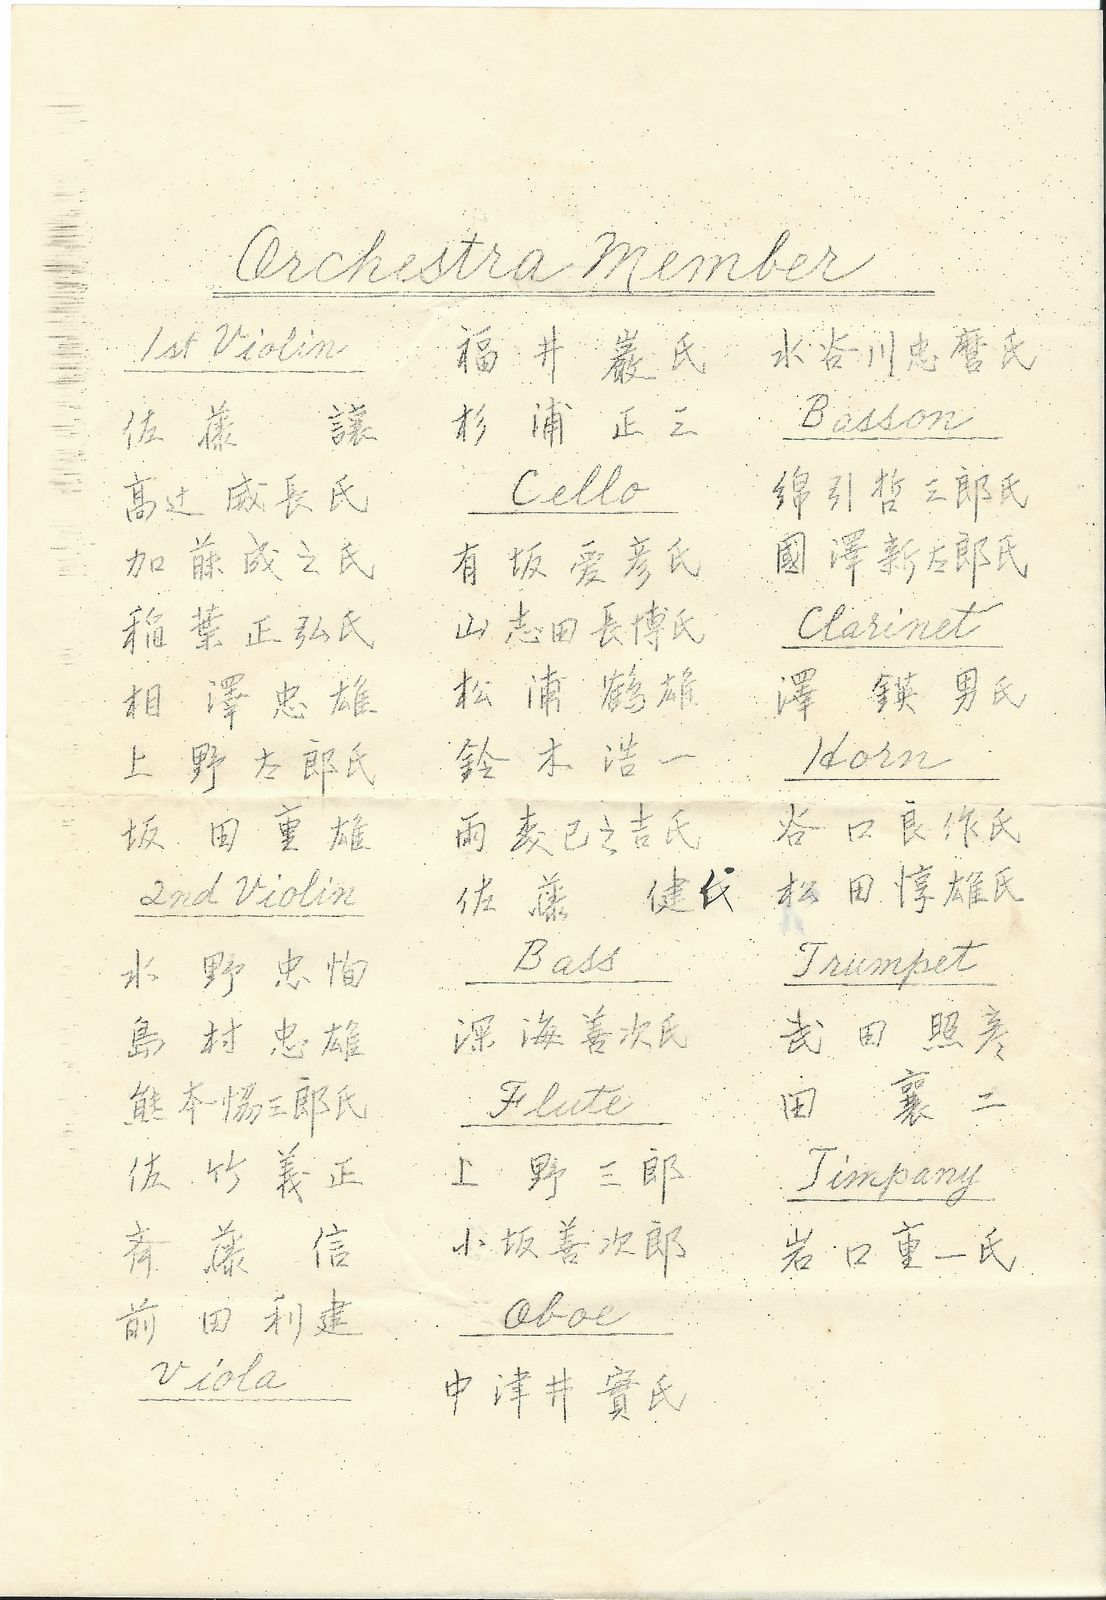 Orchestra Member
1st Violin
佐藤 讓
高辻威長氏
加藤成之氏
稲葉正弘氏
相澤忠雄
上野太郎氏
坂田重雄
2nd Violin
水野忠恂
島村忠雄
熊本惕三郎氏
佐竹義正
斉藤 信
前田利建
Viola
福井 巌氏
杉浦正三
Cello
有坂愛彦氏
山志田長博氏
松浦鶴雄
鈴木浩一
雨袁已之吉氏
佐藤 健氏
Bass
深海善次氏
Flute
上野三郎
小坂善次郎
Oboe
中津井實氏
水谷川忠麿氏
Basson
綿引哲三郎氏
國澤新太郎氏
Clarinet
澤 鍈男氏
Horn
谷口良作氏
松田惇雄氏
Trumpet
武田照彦
田 襄二
Timpany
岩口重一氏